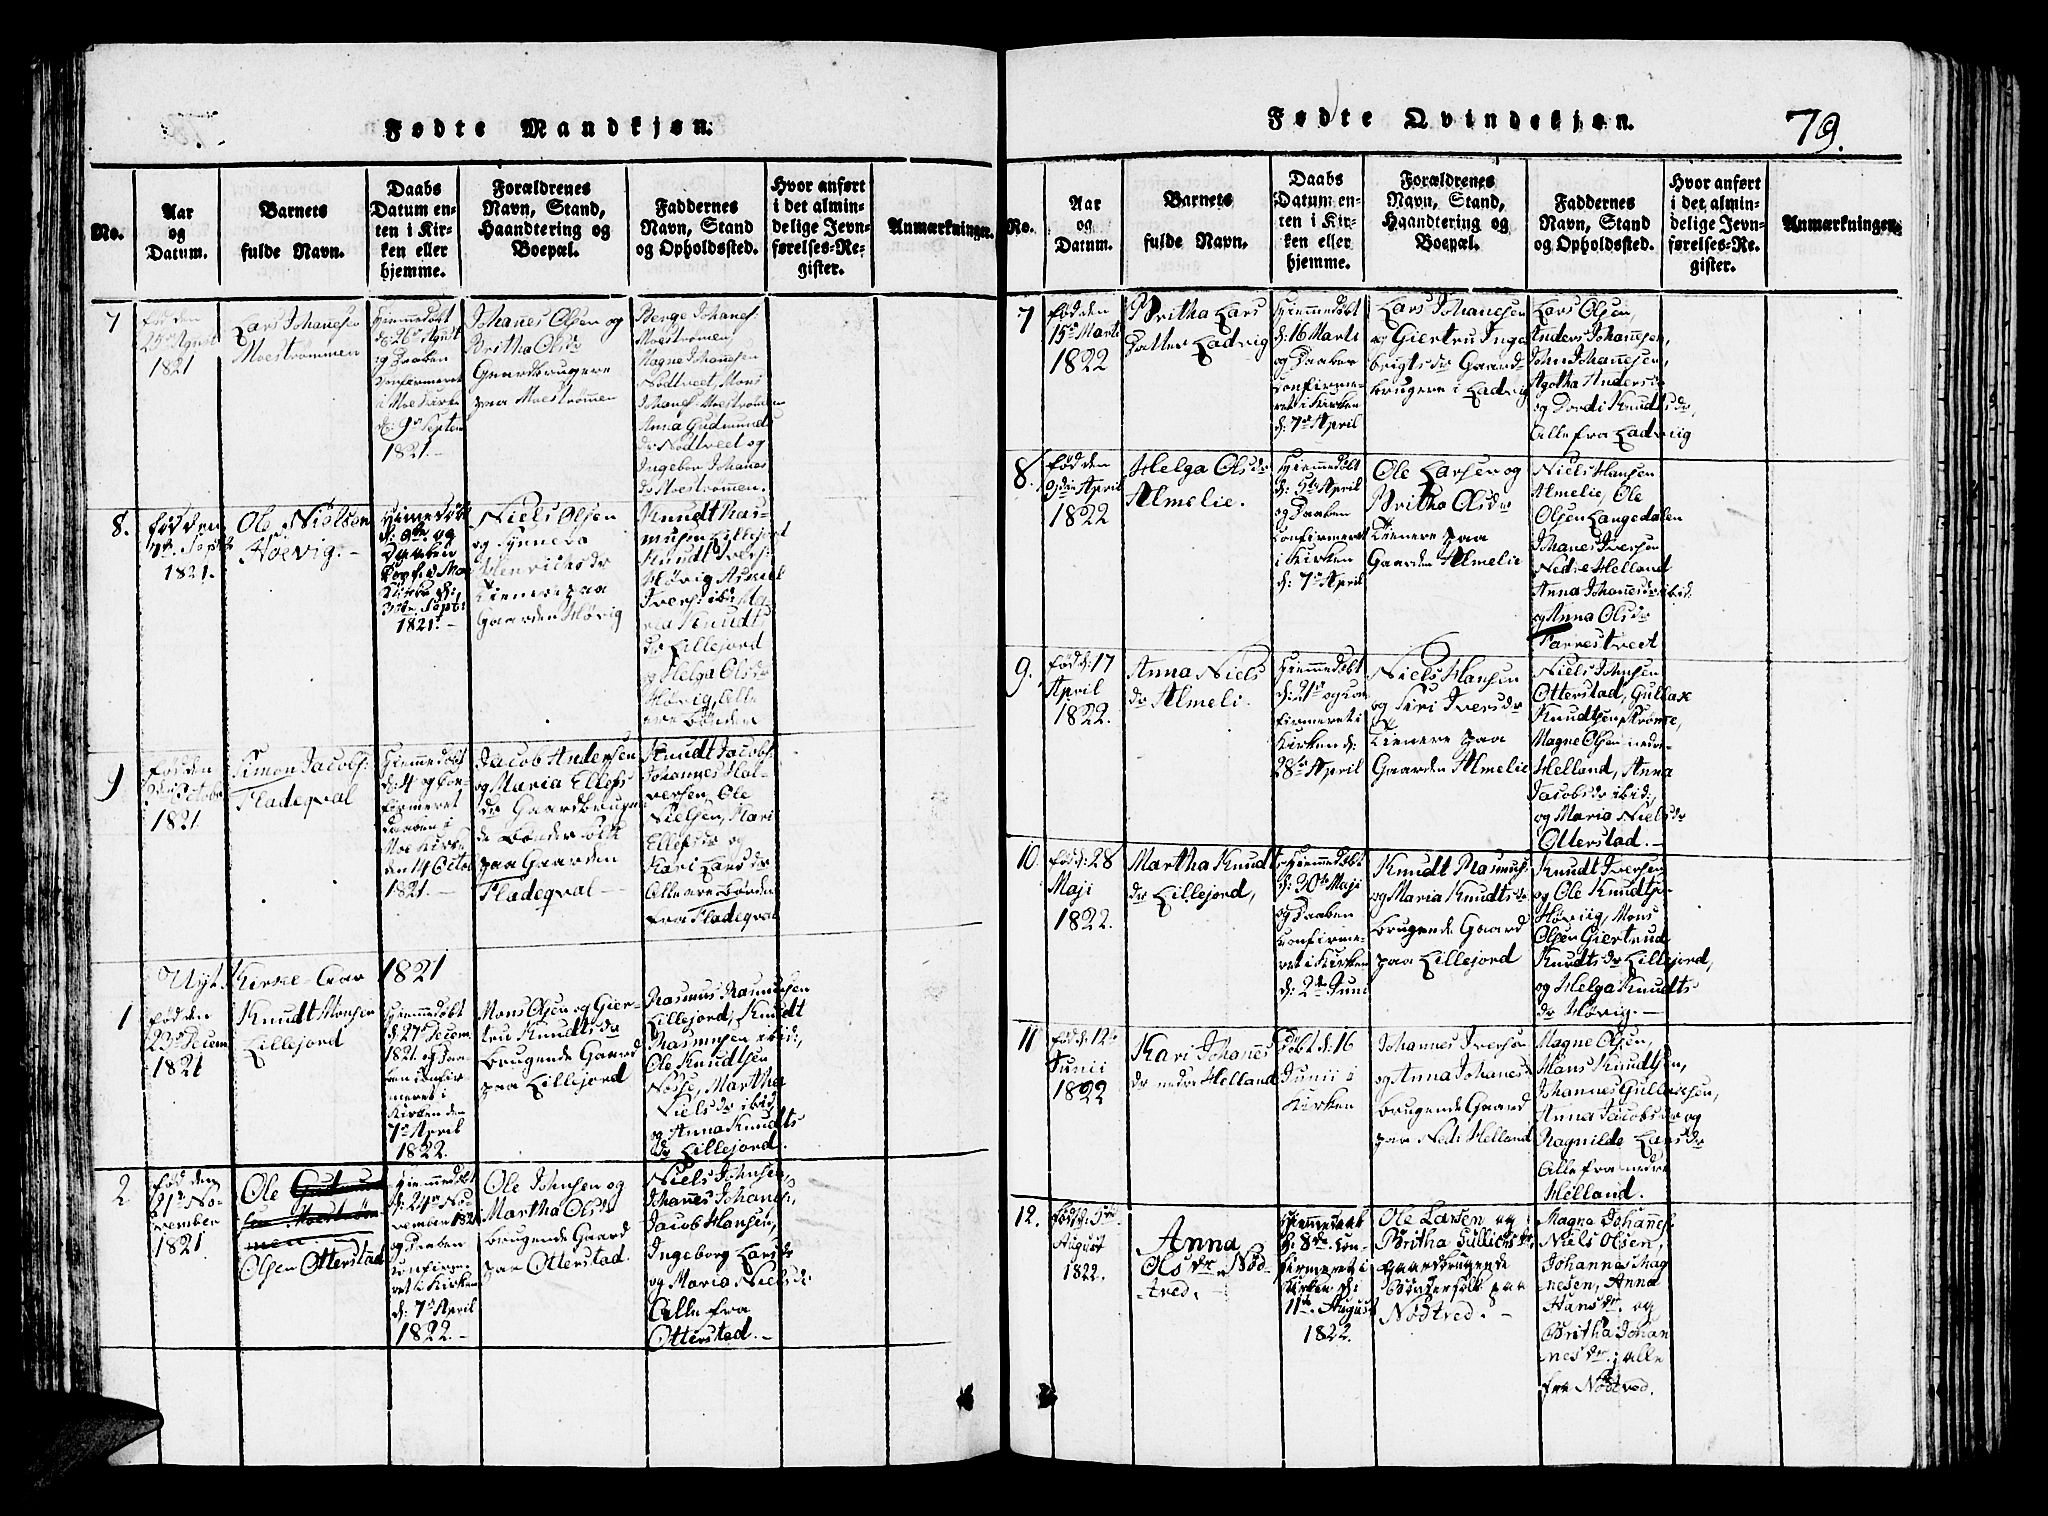 Fødte Mandkjøn.
No.
Aar
og
Datum.
Barnets
fulde Navn.
Daabs
Datum en-
ten i Kir-
ken eller
hjemme.
Forældrenes
Navn, Stand,
Haandtering og
Boepæl.
Faddernes
Navn, Stand
og Opholdssted.
Hvor anført
i det almin-
delige Jevn-
førelses-Re-
gister.
Anmærkninger.
7
fød den
25de August
1821
Lars Johanesen
Moestrømmen
Hiemmedøbt
d: 26de August
og Daaben
Confirmeret
i Moe Kirke
d: 9de Septem
1821.-
Johanes Olsen og
Britha Olsdr
Gaardbrugere
paa Moestrømmen
Berge Johanes.
Moestrømen,
Magne Johanesen
Nödtveet, Mons
Johanes. Moestrømen
Anna Gudmunds
dr Nödtveet og
Ingebor Johanes
dr Moestrømen.
8.
fød den
1821.
Ole Nielsen
Hoevig.-
Hiemedøbt
og
Daaben
Kirke d:
Sept:
1821.-
Niels Olsen
og Synneva
Henrichsdr
Tienere paa
Gaarden Høvig
Knudt Ras-
musen Lillejord
Knudt Ivers:
Høvig Askiel
Ivers: ibid: Ma
ria Knudts
dr Lillejord
og Helga Olsdr
Høvig, alle
ere bönder
9
fød den
October
1821
Simon Jacobs:
Fladeqval
Hiemmedøbt
d: 4 og Con-
firmeret
Daaben i
Moe Kirke
den 14 Octob
1821.-
Jacob Andersen
og Maria Ellefs
dr Gaardbrugen
de Bönder folk
paa Gaarden
Fladeqval-
Knudt Jacobs:
Johannes Hal-
versen, Ole
Nielsen, Kari
Ellefsdr og
Kari Larsdr
Alle ere bønder
paa Fladeqval
Nyt Kirke-Aar 1821
1
fød den
23de Decem
1821
Knudt Monsen
Lillejord
Hiemmedøbt
d: 27de Decem
1821. og Daa-
ben confir-
meret i
Kirken den
7de April
1822.
Mons Olsen og Gier-
tru Knudtsdr
brugende Gaard
paa Lillejord
Rasmus Rasmusen
Lillejord, Knudt
Rasmusen ibid:,
Ole Knudtsen
Nösse, Martha
Nielsdr ibid
og Anna Knudts
dr Lillejord.
2
fød den
21de No-
vember
1821
Ole
Olsen Otterstad
Hiemmedøbt
d: 24de No-
vember 1821
og Daaben
confirme-
ret i Kirken
d: 7de April
1822.-
Ole Johnsen og
Martha Olsdr
brugende Gaard
paa Otterstad.
Niels Johnsen,
Johanes Johanes:,
Jacob Hansen,
Ingeborg Larsdr
og Maria Nielsdr
Alle fra
Otterstad.-
Fødte Qvindekjøn.
79.
No.
Aar
og
Datum.
Barnets
fulde Navn.
Daabs
Datum en-
ten i Kir-
ken eller
hjemme.
Forældrenes
Navn, Stand,
Haandtering og
Boepæl.
Faddernes
Navn, Stand
og Opholdssted.
Hvor anført
i det almin-
delige Jevn-
førelses-Re-
gister.
Anmærkninger.
7
fød den
15de Marti
1822
Britha Lars
Datter Ladvig
Hiemmedøbt
d: 16 Marti
og Daaben
Confirme-
ret i Kirken
d: 7de April
Lars Johanesen
og Giertru Inge
brigtsdr Gaard-
brugere i Ladvig
Lars Olsen,
Anders Johanesen,
John Johanesen,
Agotha Andersdr
og Dordi Knudtsdr,
Alle fra Ladviig
8.
fød den
3die April
1822
Helga Olsdr
Almelie.
Hiemmedøbt
d: 5te April
og Daaben
Confirmeret
i Kirken
d: 7de April
Ole Larsen og
Britha Olsdr
Tienere paa
Gaarden Almelie
Niels Hansen
Almelie, Ole
Olsen Langedalen
Johanes Iversen
Nedre Helland
Anna Johanesdr ibid:
og Anna Olsdr
Farrestveit
9.
fød d: 17
April
1822.
Anna Niels
dr Almeli.
Hiemmedøbt
og Con
firmeret i
Kirken d:
28de April
Niels Hansen
og Siri Iversdr
Tienere paa
Gaarden Almelie
Niels Johnsen
Otterstad, Gullak
Knudtsen Krömke,
Magne Olsen nedre
Helland, Anna
Jacobsdr ibid:,
og Maria Nielsdr
Otterstad.-
10
fød d: 28
Maji
1822.
Martha Knudt
dr Lillejord,
Hiemmedøbt
d: 30te Maji
og Daaben
Confirme-
ret i Kirken
d: 2den Juni
Knudt Rasmus:
og Maria Knudtsdr
brugende Gaard
paa Lillejord
Knudt Iversen
og Ole Knudts.
Høviig, Mons
Olsen Giertrud
Knudtsdr Lillejord,
og Helga Knudts
dr Høvig.-
11
fød d: 12te
Junii
1822
Kari Johanes
dr nedre Helland
Døbt d: 16
Junii i
Kirken
Johannes Iversen
og Anna Johanesdr
brugende Gaard
paa Nedr Helland
Magne Olsen,
Mons Knudtsen,
Johannes Gullachsen,
Anna Jacobsdr og
Ragnilde Larsdr
Alle fra nedre
Helland.
12.
født d: 5te
August
1822.
Anna
Olsdr. Nød-
tved.
Hiemmedøbt
d: 8de Con-
firmeret i
Kirken d:
11te August
1822.
Ole Larsen og
Britha Gullichsdr,
gaardbrugende
Bönderfolk paa
Nödtved.-
Magne Johannes:
Niels Olsen,
Johannes Mag
nesen, Anna
Hansdr. og
Britha Johan
nesdr. alle
fra Nödtved.